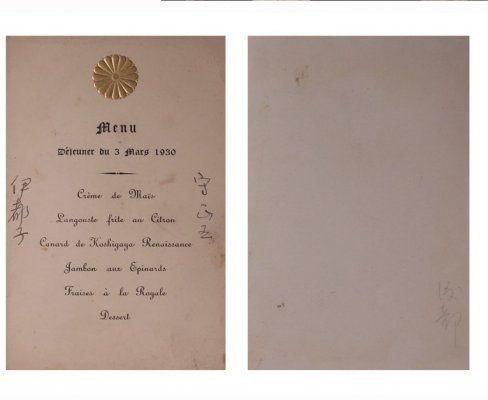 Menu
Déjeuner du 3 Mars 1930
Crème de Maïs
Langouste frite au Citron
Canard de Koshigaya Renaissance
Jambon aux Epinards
Fraises à la Royale
Dessert
伊都子
守正王